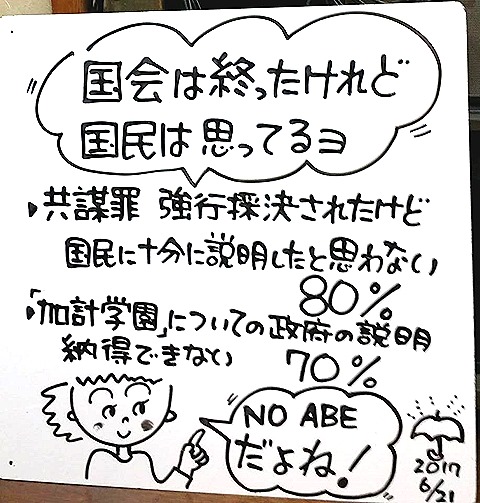 国会は終ったけれど
国民は思ってるヨ
共謀罪 強行採決されたけど
国民に十分に説明したと思わない
80%
「加計学園」についての政府の説明
納得できない 70%
NO ABE
だよね!
2017
6/21